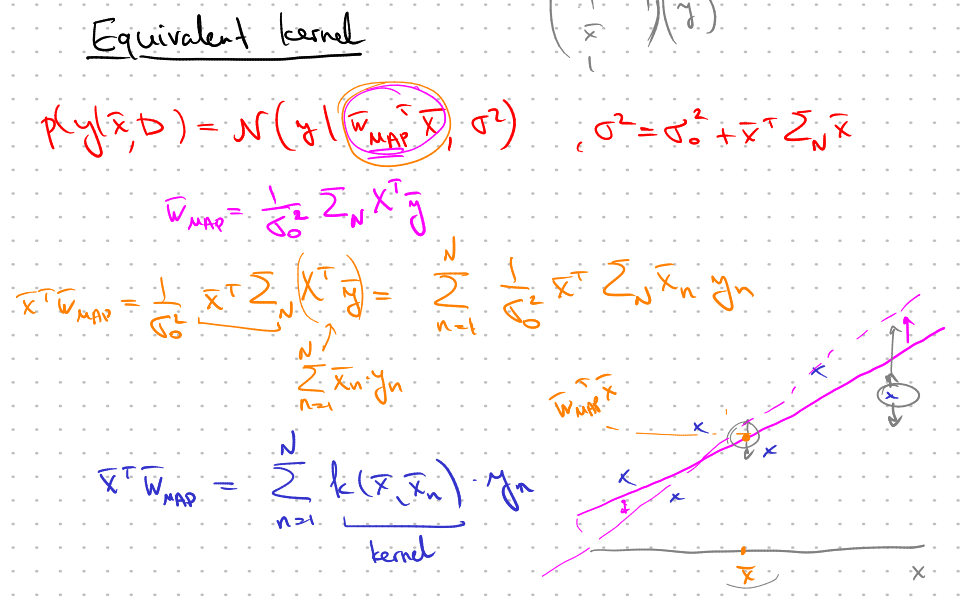 Equivalent kernel
( x̄ 1 )( y )
p(y|x̄, D) = N(y | w̄_MAP^T x̄, σ²) , σ² = σ₀² + x̄^T Σ_N x̄
w̄_MAP = 1/σ₀² Σ_N X^T ȳ
x̄^T w̄_MAP = 1/σ₀² x̄^T Σ_N (X^T ȳ) = Σ_{n=1}^{N} 1/σ₀² x̄^T Σ_N x̄_n y_n
Σ_{n=1}^{N} x̄_n · y_n
w̄_MAP^T x̄
x̄^T w̄_MAP = Σ_{n=1}^{N} k(x̄, x̄_n) · y_n
kernel
x̄
x